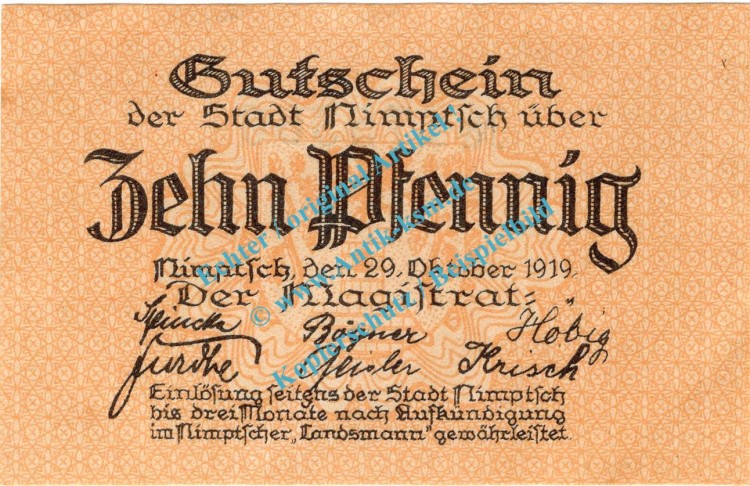 Gutschein
der Stadt Nimptsch über
Zehn Pfennig
Nimptsch, den 29. Oktober 1919.
Der Magistrat:
Bögner Hobig
Geisler Krisch
Einlösung seitens der Stadt Nimptsch
bis drei Monate nach Aufkündigung
im Nimptscher „Landsmann" gewährleistet.
Echter / original Artikel!
© www.Antikeksm.de
Kopierschutz / Beispielbild